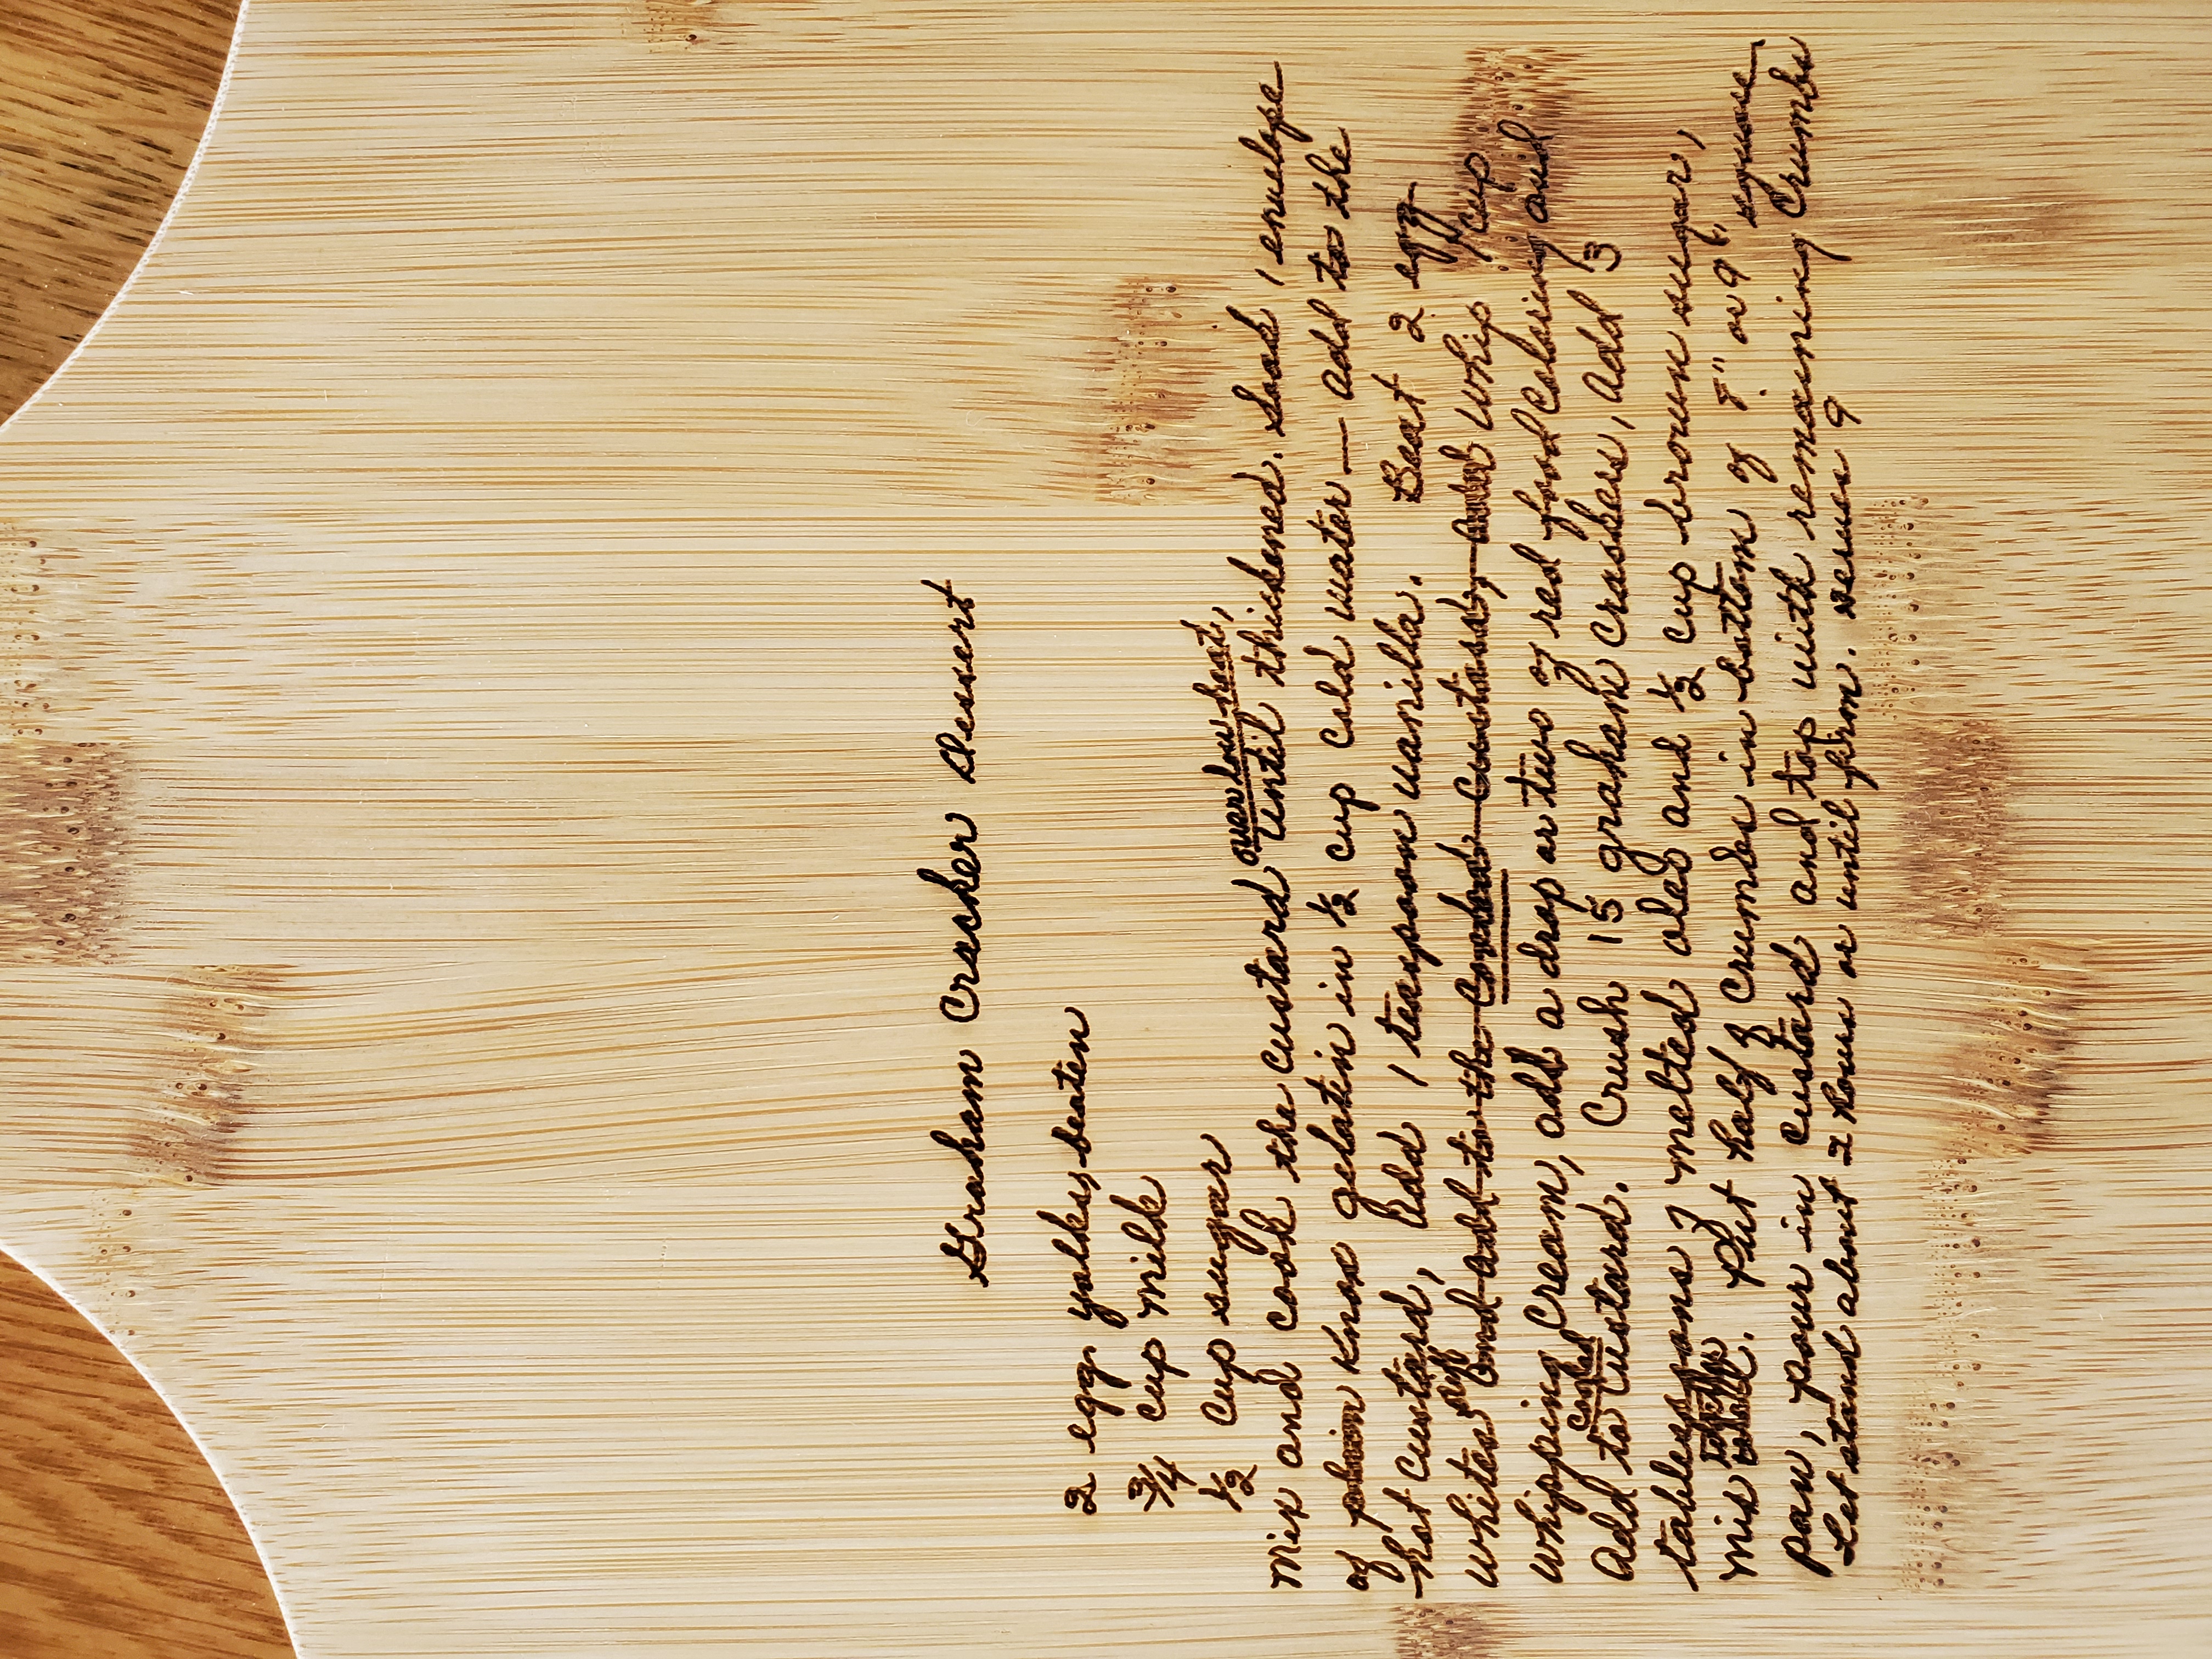 Graham Cracker Dessert
2 egg yolks, beaten
3/4 cup milk
1/2 cup sugar
over low heat,
Mix and cook the custard until thickened. Soak 1 envelope
of Knox gelatin in 1/2 cup cold water — add to the
hot custard, Add 1 teaspoon vanilla. Beat 2 egg
whites stiff and add to the cooked custard, and whip 1 cup
whipping cream, add a drop or two of red food coloring and
add to cooked custard. Crush 15 graham crackers, add 3
tablespoons of melted oleo and 1/2 cup brown sugar,
mix together. Put half of crumbs in bottom of 8" or 9" square
pan, pour in custard and top with remaining crumbs
Let stand about 2 hours or until firm. serves 9